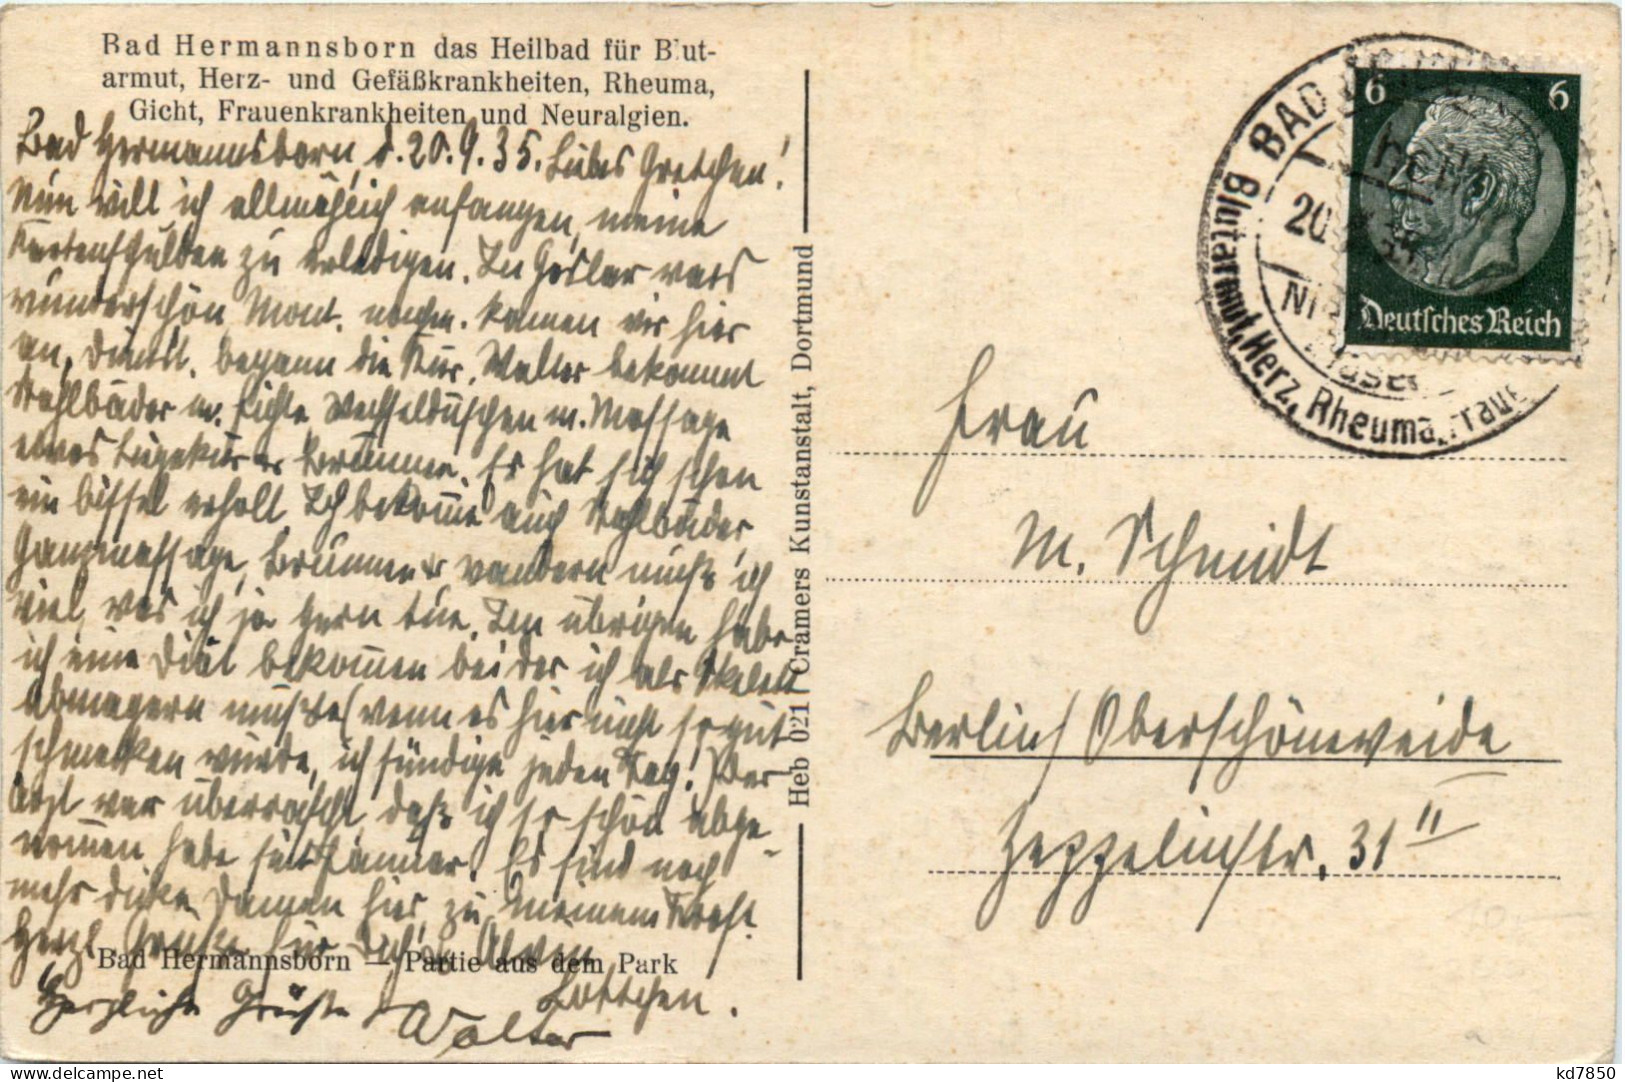 Bad Hermannsborn das Heilbad für Blut-
armut, Herz- und Gefäßkrankheiten, Rheuma,
Gicht, Frauenkrankheiten und Neuralgien.
Bad Hermannsborn, d. 20.9.35. Liebes Gretchen!
Nun will ich allmählich anfangen, meine
Kartenschulden zu erledigen. In Goslar wars
wunderschön. Mont. nachm. kamen wir hier
an, Dienst. begann die Kur. Walter bekommt
Stahlbäder m. Fichte, Wechselduschen m. Massage
etwas Liegekur u. Brunnen. Er hat sich schon
ein bissel erholt. Ich bekomme auch Stahlbäder,
Ganzmassage, Brunnen u. wandern muß ich
viel, was ich ja gern tue. Im übrigen habe
ich eine Diät bekommen bei der ich als Skelett
abmagern müßte (wenn es hier nicht so gut
schmecken würde, ich sündige jeden Tag!) Der
Arzt war überrascht, daß ich so schön abge-
nommen habe seit Januar. Es sind noch
mehr dicke Damen hier, zu meinem Trost.
Herzl. Grüße für Dich u.
Lottchen.
Herzliche Grüße Walter
Bad Hermannsborn — Partie aus dem Park
Heb 021 / Cramers Kunstanstalt, Dortmund
BAD
20
Blutarmut, Herz, Rheuma, Frau
6 6
Deutsches Reich
Frau
M. Schmidt
Berlin/Oberschöneweide
Zeppelinstr. 31 II
10.—
kd7850